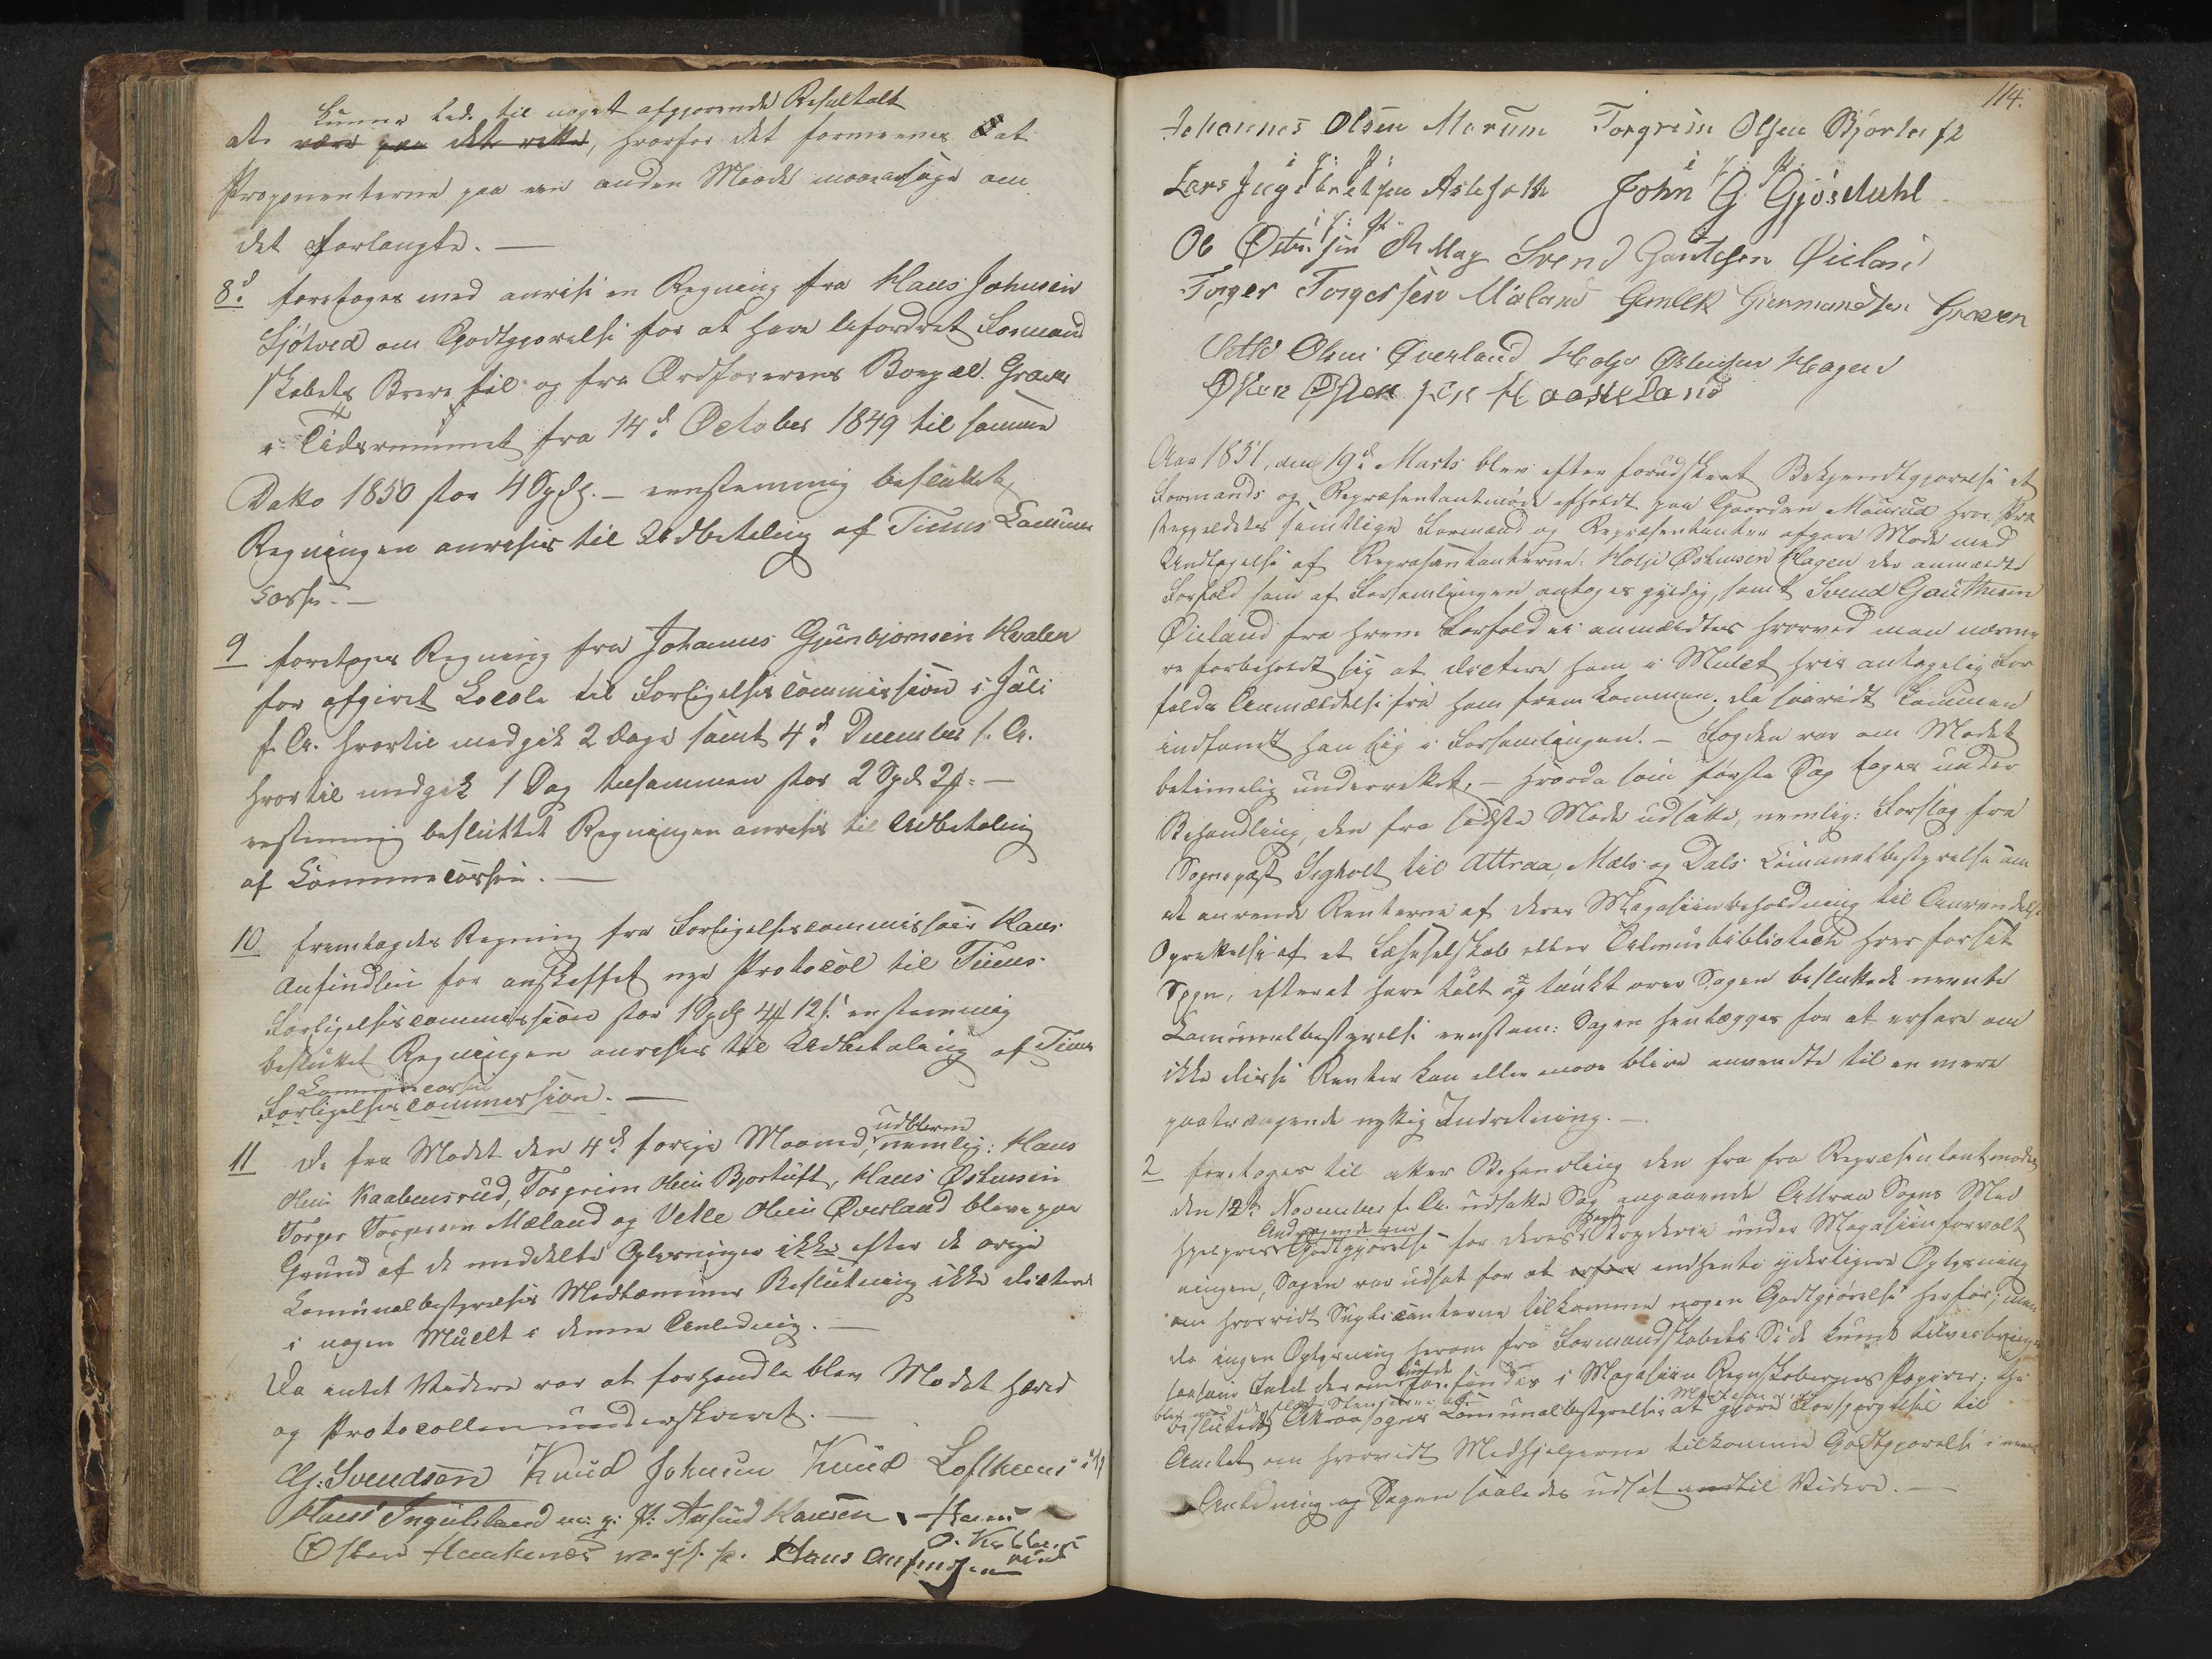 kunne lede til noget afgjørende Resultatt
at være paa det rette, hvorfor det formeenes at
Proponenterne paa een anden Maade maae søge om
det forlangte. —
8d. foretoges med anvist en Regning fra Hans Johnsen
Sjøtved om Godtgjørelse for at have befordret Formand
skabets Breve til og fra Ordførerens Bopæl Graver
i Tidsrummet fra 14d. October 1849 til samme
Datto 1850 stor 4 Spdl. — eenstemmig besluttet
Regningen anvises til Udbetaling af Tinns Commune
Casse. —
9 foretoges Regning fra Johannes Gunbjørnsen Kvalen
for afgivet Locale til Forligelsescommission i Juli
f. A. hvortil medgik 2 Dage samt 4d. December f. A.
hvortil medgik 1 Dag tilsammen stor 2 Spd. 2 —
eenstemmig besluttet Regningen anvises til Udbetaling
af Communecassen. —
10 fremlagdes Regning fra Forligelsescommissair Hans
Anfindsen for anskaffet nye Protocol til Tinns
Forligelsescommission stor 1 Spdl 4 12 s. eenstemmig
besluttet Regningen anvises til Udbetaling af Tinns
Communecassen
Forligelsescommission. —
udblevne
11 De fra Mødet den 4d. forrige Maaned, nemlig: Hans
Olsen Kaabensrud, Torgrim Olsen Bjørtuft, Hans Østensen
Torger Torgersen Mæland og Vetle Olsen Øverland bleve paa
Grund af de meddelte Oplysninger ikke efter de øvrige
Communalbestyrelses Medlemmers Beslutning ikke dicteret
i nogen Mulct i denne Anledning. —
Da intet Videre var at forhandle blev Mødet hævet
og Protocollen underskrevet. —
G: Svendsøn Knud Johnsen Knud Lofthuus
Hans Ingulsland m: p: P: Anfind Hansen Hans
Østen Haakenæs m. p. P. Hans Anfindsen O. Kaabensrud
114.
Johannes Olsen Marum Torgrim Olsen Bjørtuft
Lars Ingebretsen John G Gjøsdahl
Svend Gautesen Øieland
Torger Torgersen Mæland Gunleik Giermundsen Graver
Vetle Olsen Øverland Holje Østensen Hagen
Østen Østensen Haakeland
Aar 1851, den 19d. Marts blev efter forudskeet Bekjendtgjørelse et
Formands og Repræsentantmøde afholdt paa Gaarden Maurud hvor Præ
stegjeldets samtlige Formænd og Repræsentanter afgave Møde med
Undtagelse af Repræsentanterne: Holje Østensen Hagen der anmeldte
Forfald som af Forsamlingen antoges gyldig, samt Svend Gautesen
Øieland fra hvem Forfald ei anmældtes hvorved man nærme
re forbeholdt sig at dictere ham i Mulct hvis antagelig For
falds Anmældelse fra ham fremkommer, da saavidt kommen
indfandt han sig i Forsamlingen. — Fogden var om Mødet
betimelig underrettet, — hvorda som første Sag toges under
Behandling, den fra sidste Møde udsatte, nemlig: Forslag fra
Sognepræst til Attraa, Mæls og Dals Communalbestyrelse om
at anvende Renterne af deres Magasiinbeholdning til Anvendelse
Oprettelse af et Læseselskab eller Almuebibliothek hver for sit
Sogn, efterat have talt og tænkt over Sagen besluttede nævnte
Communalbestyrelse eenstem: Sagen henlægges for at erfare om
ikke disse Renter kan eller maae blive anvendte til en mere
paatrængende nyttig Indretning. —
2 foretoges til atter Behandling den fra Repræsentantmødet
den 12te November f. A. udsatte Sag angaaende Attraa Sogns Med
Andragende om
hjelperes Godtgjørelse for deres under Magasiinforvalt
ningen, Sagen var udsat for at erfare indhente yderligere Oplysning
om hvorvidt Suplicanterne tilkomme nogen Godtgjørelse herfor; men
da ingen Oplysning herom fra Formandskabets Side kunde tilveiebringes
kunde
saasom Intet derom findes i Magasiin Regnskabernes Papirer; thi
besluttede Attraasogns Communalbestyrelse at gjøre Forspørgelse til
Amtet om hvorvidt Medhjelperne tilkomme Godtgjørelse i
Anledning og Sagen saaledes udsat indtil Videre. —